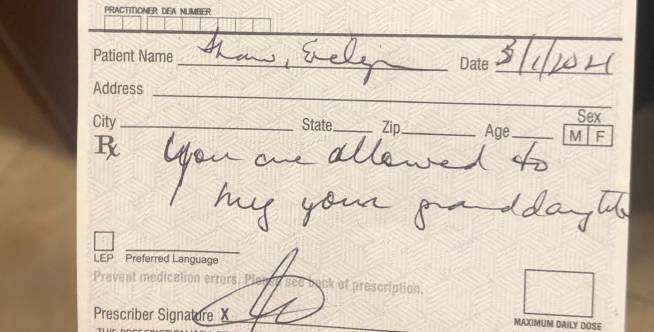 PRACTITIONER DEA NUMBER
Patient Name Shaw, Evelyn Date 3/1/2021
Address
City State Zip Age Sex
M F
Rx You are allowed to
hug your granddaughter
LEP Preferred Language
Prevent medication errors. Please see back of prescription.
Prescriber Signature X
MAXIMUM DAILY DOSE